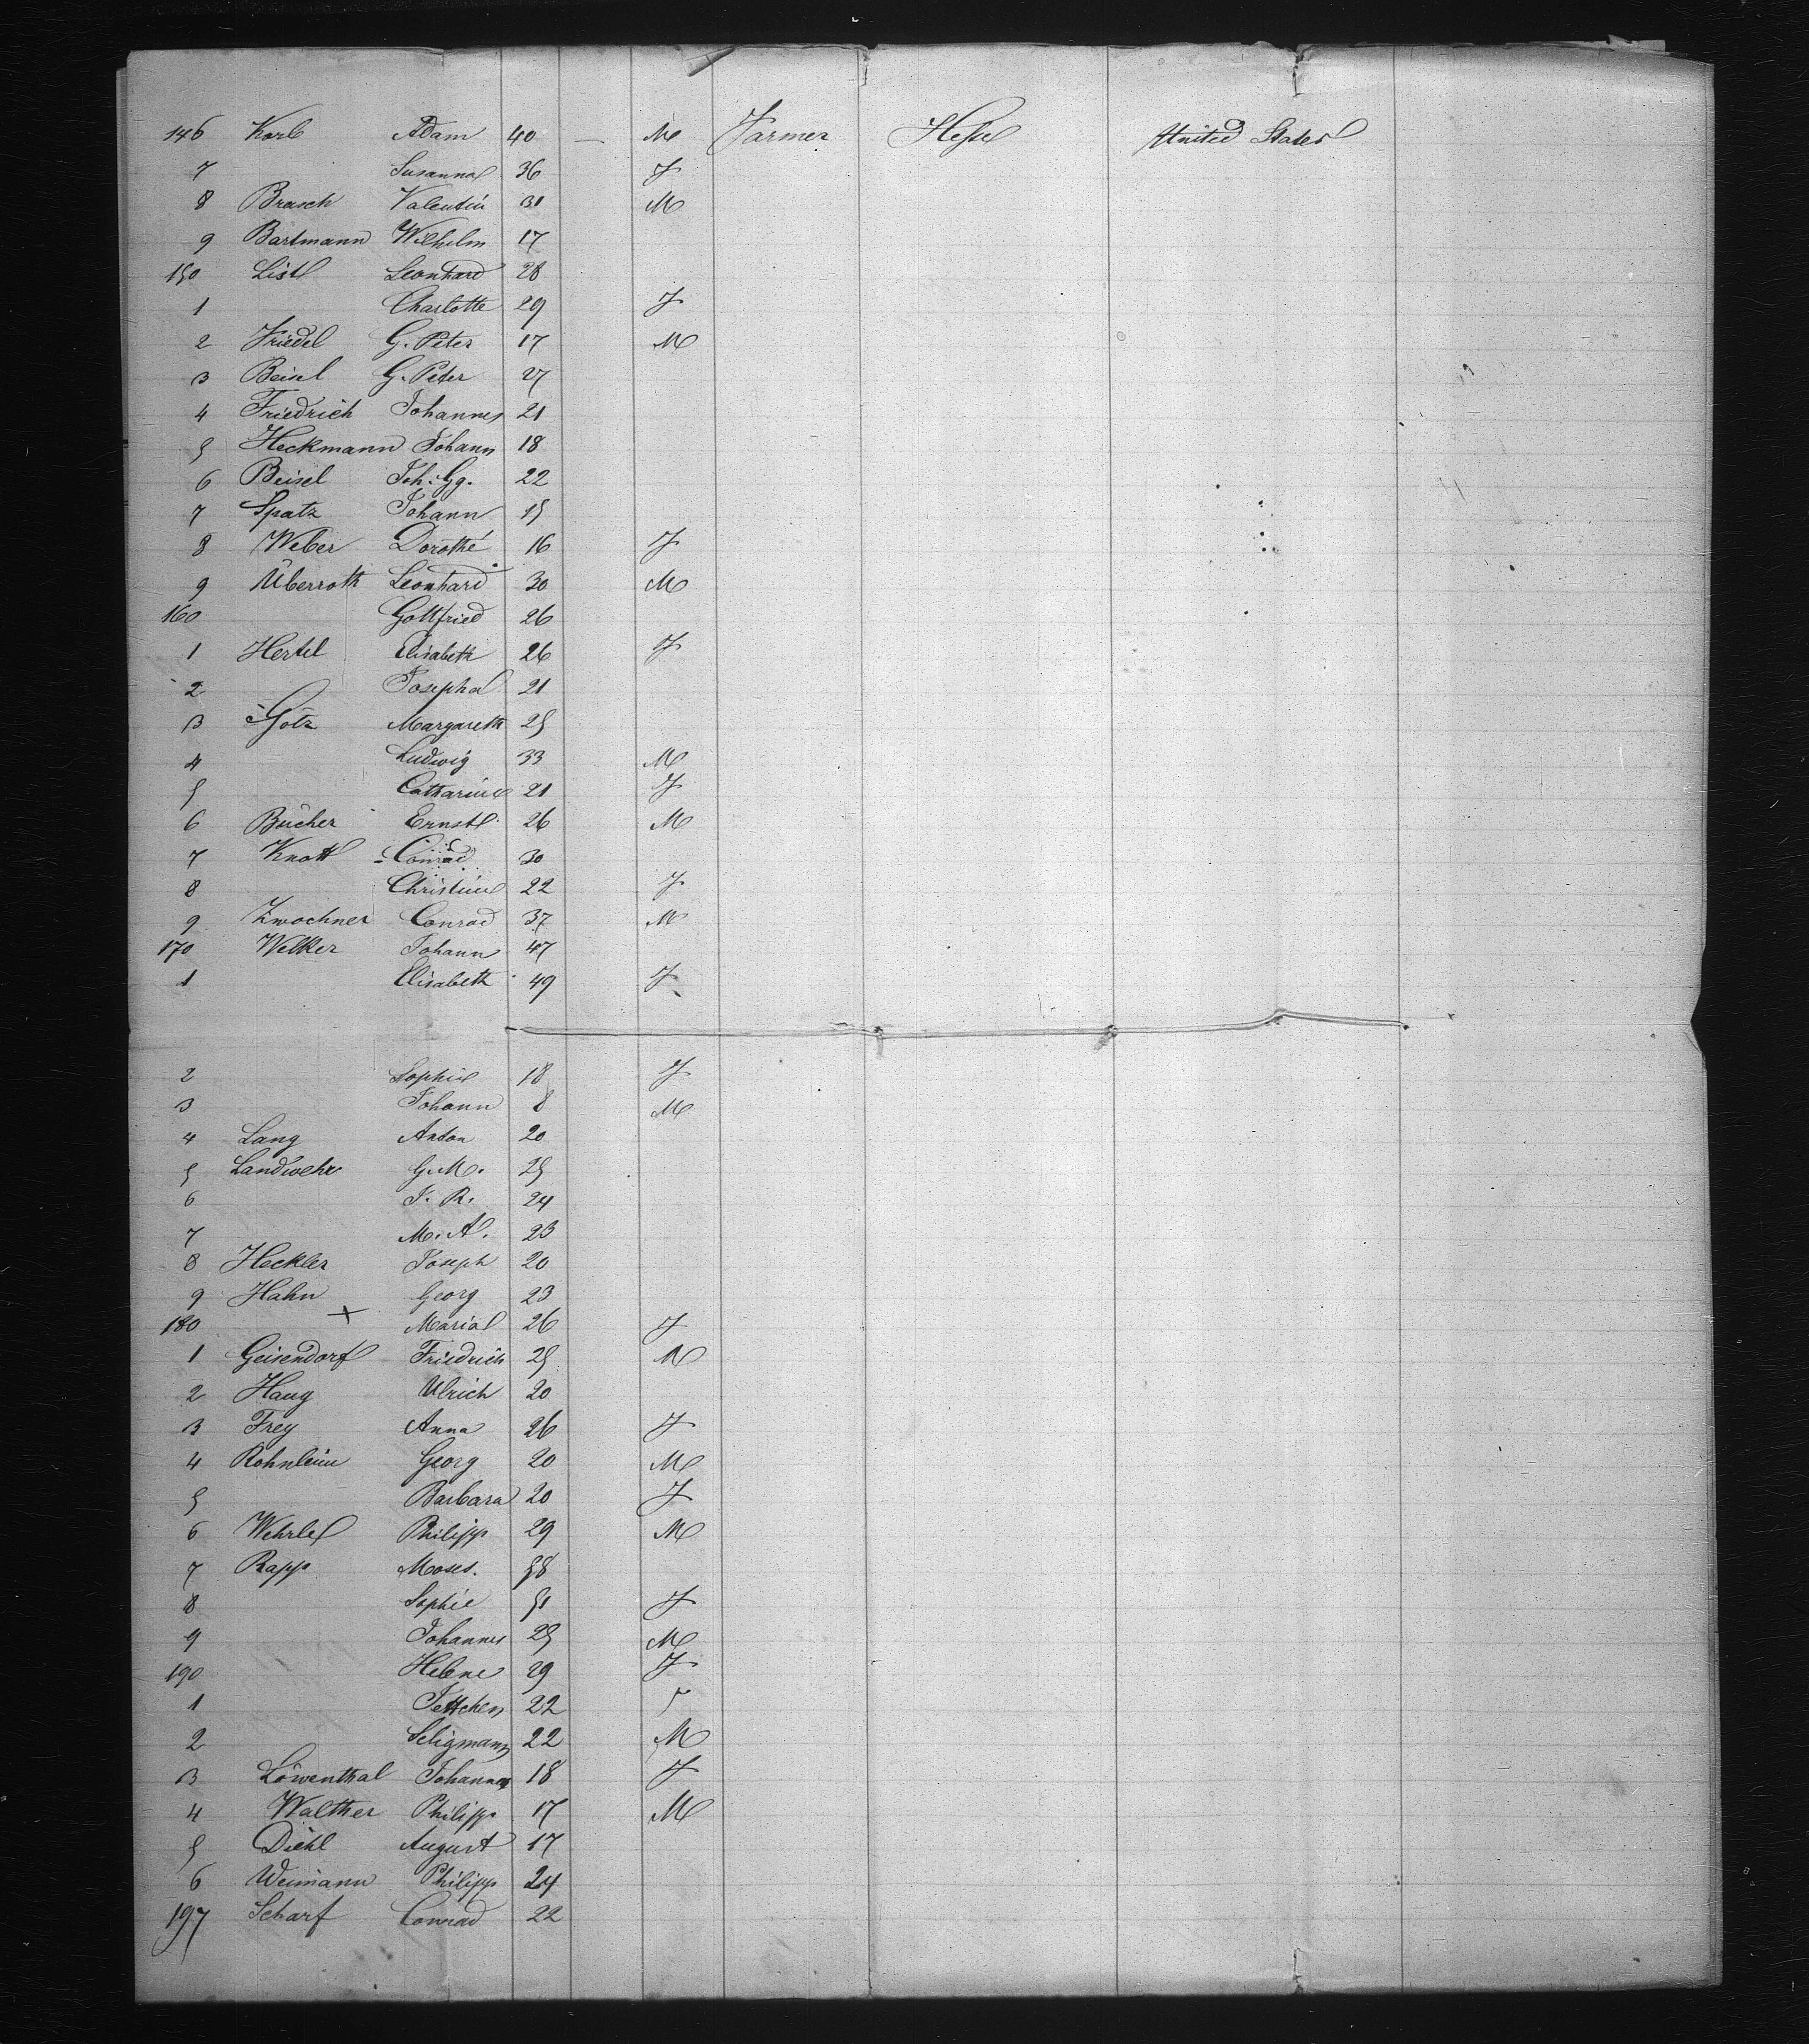 146 Korb Adam 40 — M Farmer Hesse United States
7 Susanna 36 F
8 Brasch Valentin 31 M
9 Bartmann Wilhelm 17
150 List Leonhard 28
1 Charlotte 29 F
2 Friedel G. Peter 17 M
3 Beisel G. Peter 27
4 Friedrich Johannes 21
5 Heckmann Johann 18
6 Beisel Joh. Gg. 22
7 Spatz Johann 15
8 Weber Dorothé 16 F
9 Überroth Leonhard 30 M
160 Gottfried 26
1 Hertel Elisabeth 26 F
2 Josepha 21
3 Götz Margareth 25
4 Ludwig 33 M
5 Catharine 21 F
6 Bücher Ernst 26 M
7 Knott Conrad 30
8 Christine 22 F
9 Zwochner Conrad 37 M
170 Welker Johann 47
1 Elisabeth 49 F
2 Sophie 18 F
3 Johann 8 M
4 Lang Anton 20
5 Landwehr G. M. 25
6 J. R. 24
7 M. A. 23
8 Heckler Joseph 20
9 Hahn Georg 23
180 x Maria 26 F
1 Geisendorf Friedrich 25 M
2 Haug Ulrich 20
3 Frey Anna 26 F
4 Rohnlein Georg 20 M
5 Barbara 20 F
6 Wehrle Philipp 29 M
7 Rapp Moses. 58
8 Sophie 51 F
9 Johannes 25 M
190 Helene 29 F
1 Jettchen 22 F
2 Seligmann 22 M
3 Löwenthal 18 F
4 Walther Philipp 17 M
5 Diehl August 17
6 Weimann Philipp 24
197 Scharf Conrad 22